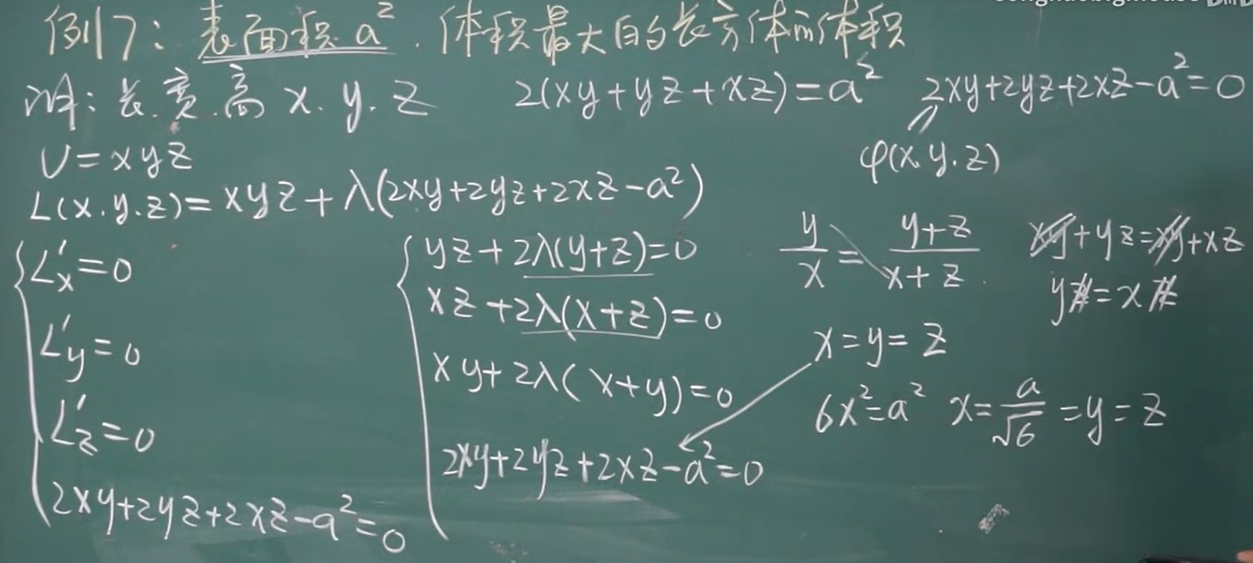 例7：表面积 a². 体积最大的长方体的体积
解：长.宽.高 x.y.z 2(xy+yz+xz)=a² 2xy+2yz+2xz-a²=0
φ(x.y.z)
V=xyz
L(x.y.z)=xyz+λ(2xy+2yz+2xz-a²)
L'x=0
L'y=0
L'z=0
2xy+2yz+2xz-a²=0
yz+2λ(y+z)=0
xz+2λ(x+z)=0
xy+2λ(x+y)=0
2xy+2yz+2xz-a²=0
y/x=(y+z)/(x+z)
xy+yz=xy+xz
yz=xz
x=y=z
6x²=a² x=a/√6=y=z